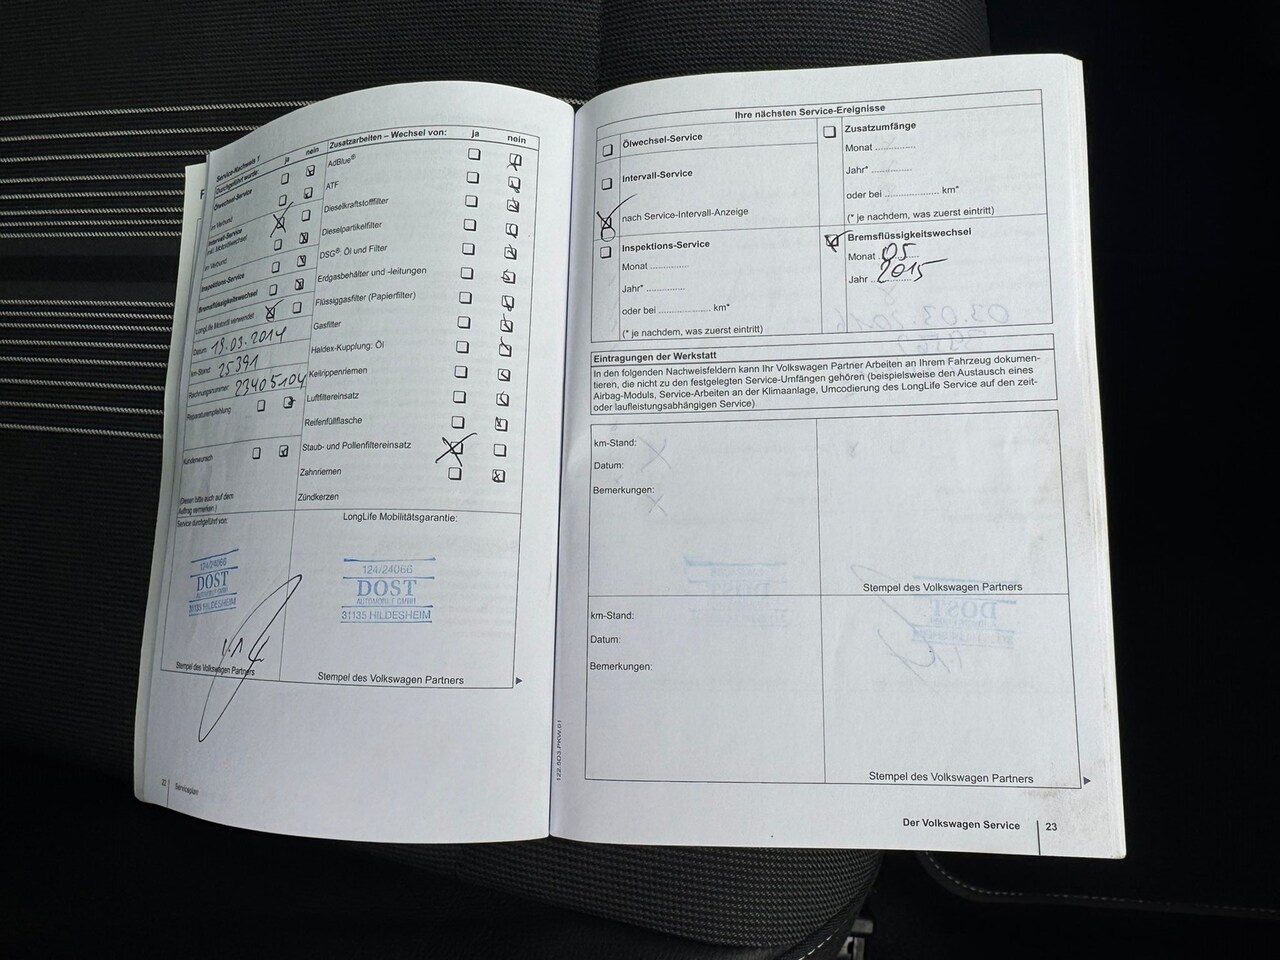 Service-Nachweis 1
Durchgeführt wurde: ja nein
Ölwechsel-Service
im Verbund
Intervall-Service
inkl. Motorölwechsel
im Verbund
Inspektions-Service
Bremsflüssigkeitswechsel
LongLife Motoröl verwendet
Datum: 19.03.2014
km-Stand: 25391
Rechnungsnummer: 23405104
Reparaturempfehlung
Kundenwunsch
(Diesen bitte auch auf dem
Auftrag vermerken.)
Zusatzarbeiten – Wechsel von: ja nein
AdBlue®
ATF
Dieselkraftstofffilter
Dieselpartikelfilter
DSG®: Öl und Filter
Erdgasbehälter und -leitungen
Flüssiggasfilter (Papierfilter)
Gasfilter
Haldex-Kupplung: Öl
Keilrippenriemen
Luftfiltereinsatz
Reifenfüllflasche
Staub- und Pollenfiltereinsatz
Zahnriemen
Zündkerzen
Service durchgeführt von:
124/24066
DOST
AUTOMOBILE GMBH
31135 HILDESHEIM
Stempel des Volkswagen Partners
LongLife Mobilitätsgarantie:
124/24066
DOST
AUTOMOBILE GMBH
31135 HILDESHEIM
Stempel des Volkswagen Partners
22 Serviceplan
122.5D3.PKW.01
Ihre nächsten Service-Ereignisse
Ölwechsel-Service
Intervall-Service
nach Service-Intervall-Anzeige
Inspektions-Service
Monat ..............
Jahr* ..............
oder bei .................... km*
(* je nachdem, was zuerst eintritt)
Zusatzumfänge
Monat ..............
Jahr* ..............
oder bei .................... km*
(* je nachdem, was zuerst eintritt)
Bremsflüssigkeitswechsel
Monat 05
Jahr 2015
Eintragungen der Werkstatt
In den folgenden Nachweisfeldern kann Ihr Volkswagen Partner Arbeiten an Ihrem Fahrzeug dokumen-
tieren, die nicht zu den festgelegten Service-Umfängen gehören (beispielsweise den Austausch eines
Airbag-Moduls, Service-Arbeiten an der Klimaanlage, Umcodierung des LongLife Service auf den zeit-
oder laufleistungsabhängigen Service)
km-Stand:
Datum:
Bemerkungen:
Stempel des Volkswagen Partners
km-Stand:
Datum:
Bemerkungen:
Stempel des Volkswagen Partners
Der Volkswagen Service 23